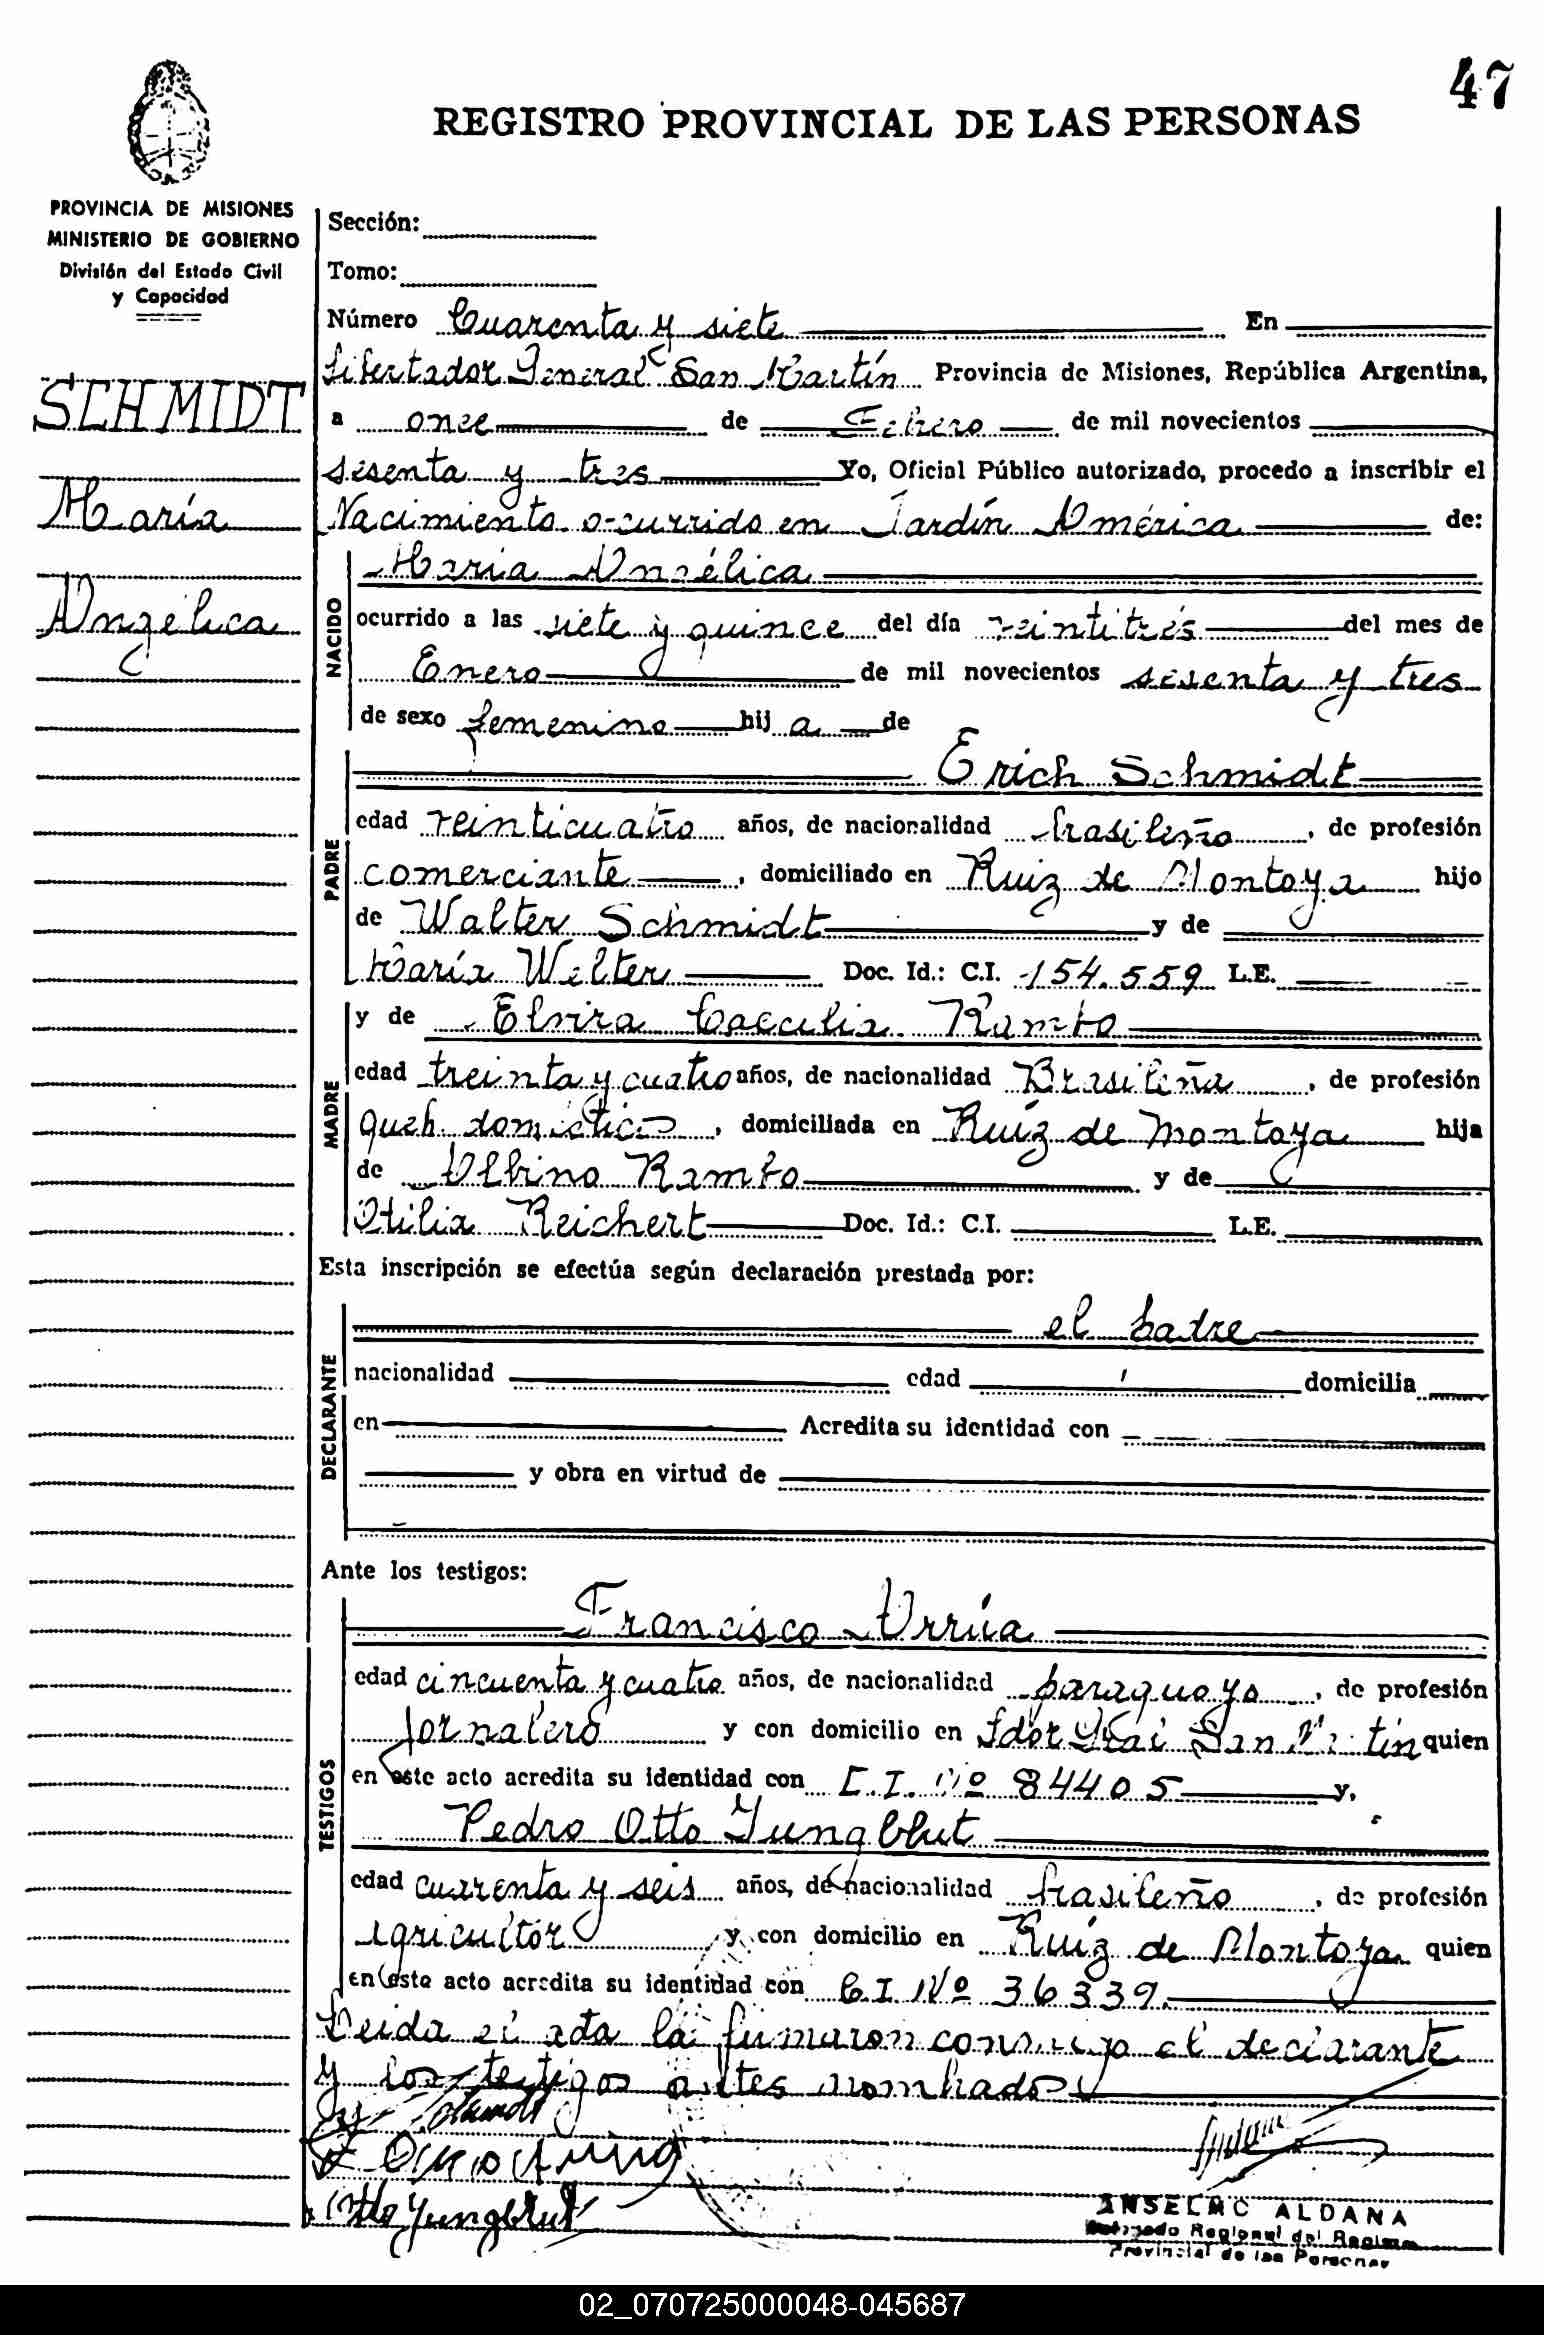 47
REGISTRO PROVINCIAL DE LAS PERSONAS
PROVINCIA DE MISIONES
MINISTERIO DE GOBIERNO
División del Estado Civil
y Capacidad
SCHMIDT
María
Angélica
Sección:
Tomo:
Número Cuarenta y siete En
Libertador General San Martín Provincia de Misiones, República Argentina,
a once de Febrero de mil novecientos
sesenta y tres Yo, Oficial Público autorizado, procedo a inscribir el
Nacimiento ocurrido en Jardín América de:
NACIDO
María Angélica
ocurrido a las siete y quince del día veintitrés del mes de
Enero de mil novecientos sesenta y tres
de sexo femenino hij a de
PADRE
Erich Schmidt
edad veinticuatro años, de nacionalidad brasileño, de profesión
comerciante, domiciliado en Ruiz de Montoya hijo
de Walter Schmidt y de
María Welter Doc. Id.: C.I. 154.559 L.E.
MADRE
y de Elvira Caecilia Rambo
edad treinta y cuatro años, de nacionalidad Brasileña, de profesión
queh. domésticos, domiciliada en Ruíz de Montoya hija
de Albino Rambo y de
Otilia Reichert Doc. Id.: C.I. L.E.
Esta inscripción se efectúa según declaración prestada por:
DECLARANTE
el padre
nacionalidad edad domicilia
en Acredita su identidad con
y obra en virtud de
Ante los testigos:
TESTIGOS
Francisco Urrúa
edad cincuenta y cuatro años, de nacionalidad paraguayo, de profesión
jornalero y con domicilio en Ldor Gral San Martín quien
en este acto acredita su identidad con C.I. Nº 84405 y,
Pedro Otto Jungblut
edad cuarenta y seis años, de nacionalidad brasileño, de profesión
agricultor y con domicilio en Ruíz de Montoya quien
en este acto acredita su identidad con C.I Nº 36339.
Leida el acta la firmaron conmigo el declarante
y los testigos antes nombrados
Otto Jungblut
ANSELMO ALDANA
Delegado Regional del Registro
Provincial de las Personas
02_070725000048-045687